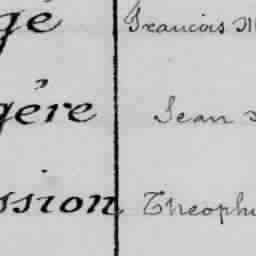 gé Francois M
gère Jean
ssion Theophi